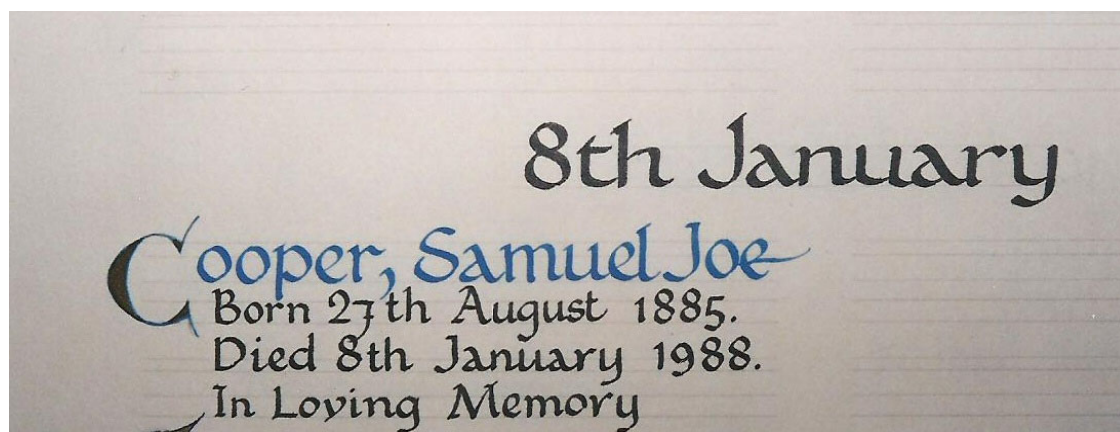 8th January
Cooper, Samuel Joe
Born 27th August 1885.
Died 8th January 1988.
In Loving Memory